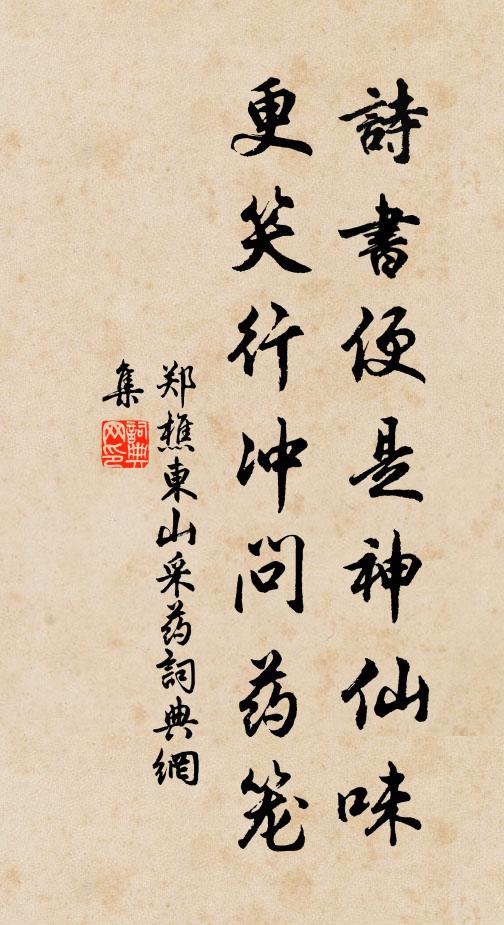 詩書便是神仙味
更笑行冲問药笼
郑樵東山采药詞典網
集
詞典
网印